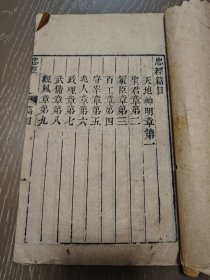 忠經篇目
天地神明章第一
聖君章第二
冢臣章第三
百工章第四
守宰章第五
兆人章第六
政理章第七
武備章第八
觀風章第九
忠經